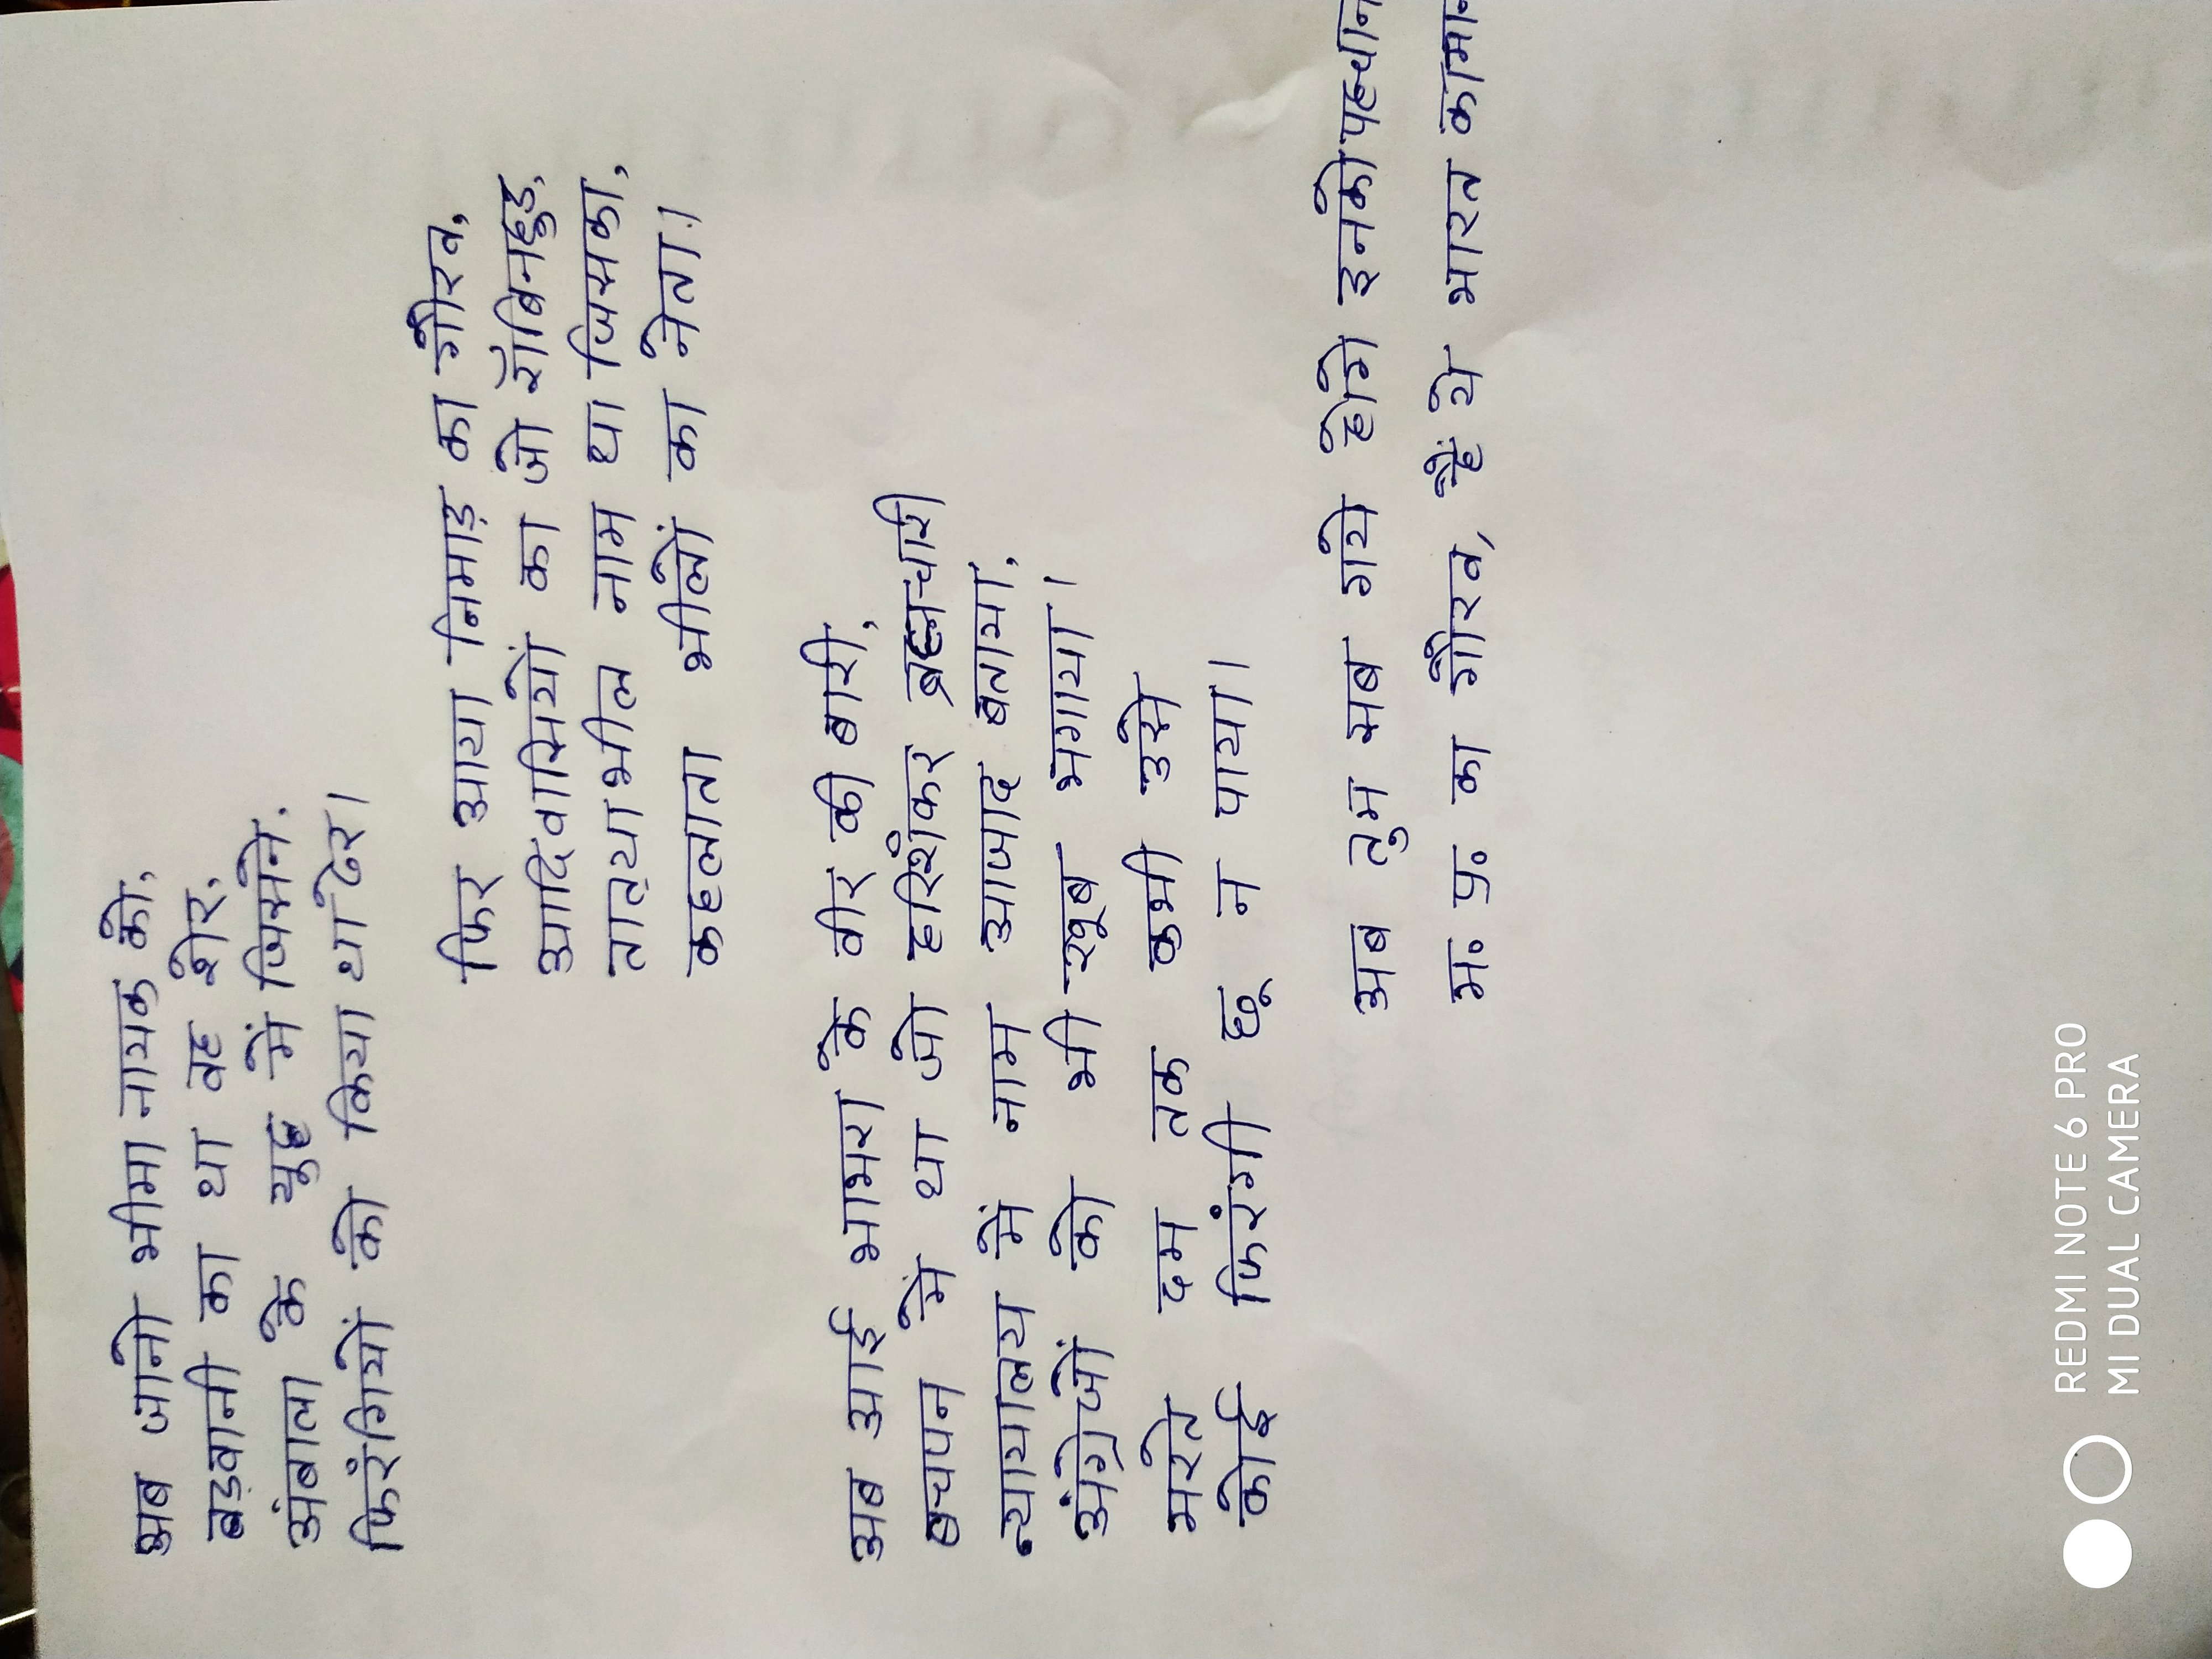 अब जानो भीमा नायक को,
बड़वानी का था वह शेर,
अंबाला के युद्ध में जिसने,
फिरंगियों को किया था ढेर।
फिर आया निमाड़ का गौरव,
आदिवासियों का जो रॉबिनहुड,
तात्या भील नाम था जिसका,
कहलाता भीलों का नेता।
अब आई भाभरा के वीर की बारी,
बचपन से था जो हरिशंकर ब्रह्मचारी
न्यायालय में नाम आजाद बताया,
अंग्रेजों को भी खूब भगाया।
मरते दम तक कभी उसे
कोई फिरंगी छू न पाया।
अब तुम सब गये होगे इनको पहचान
म. प्र. का गौरव, हैं ये भारत का मान
REDMI NOTE 6 PRO
MI DUAL CAMERA